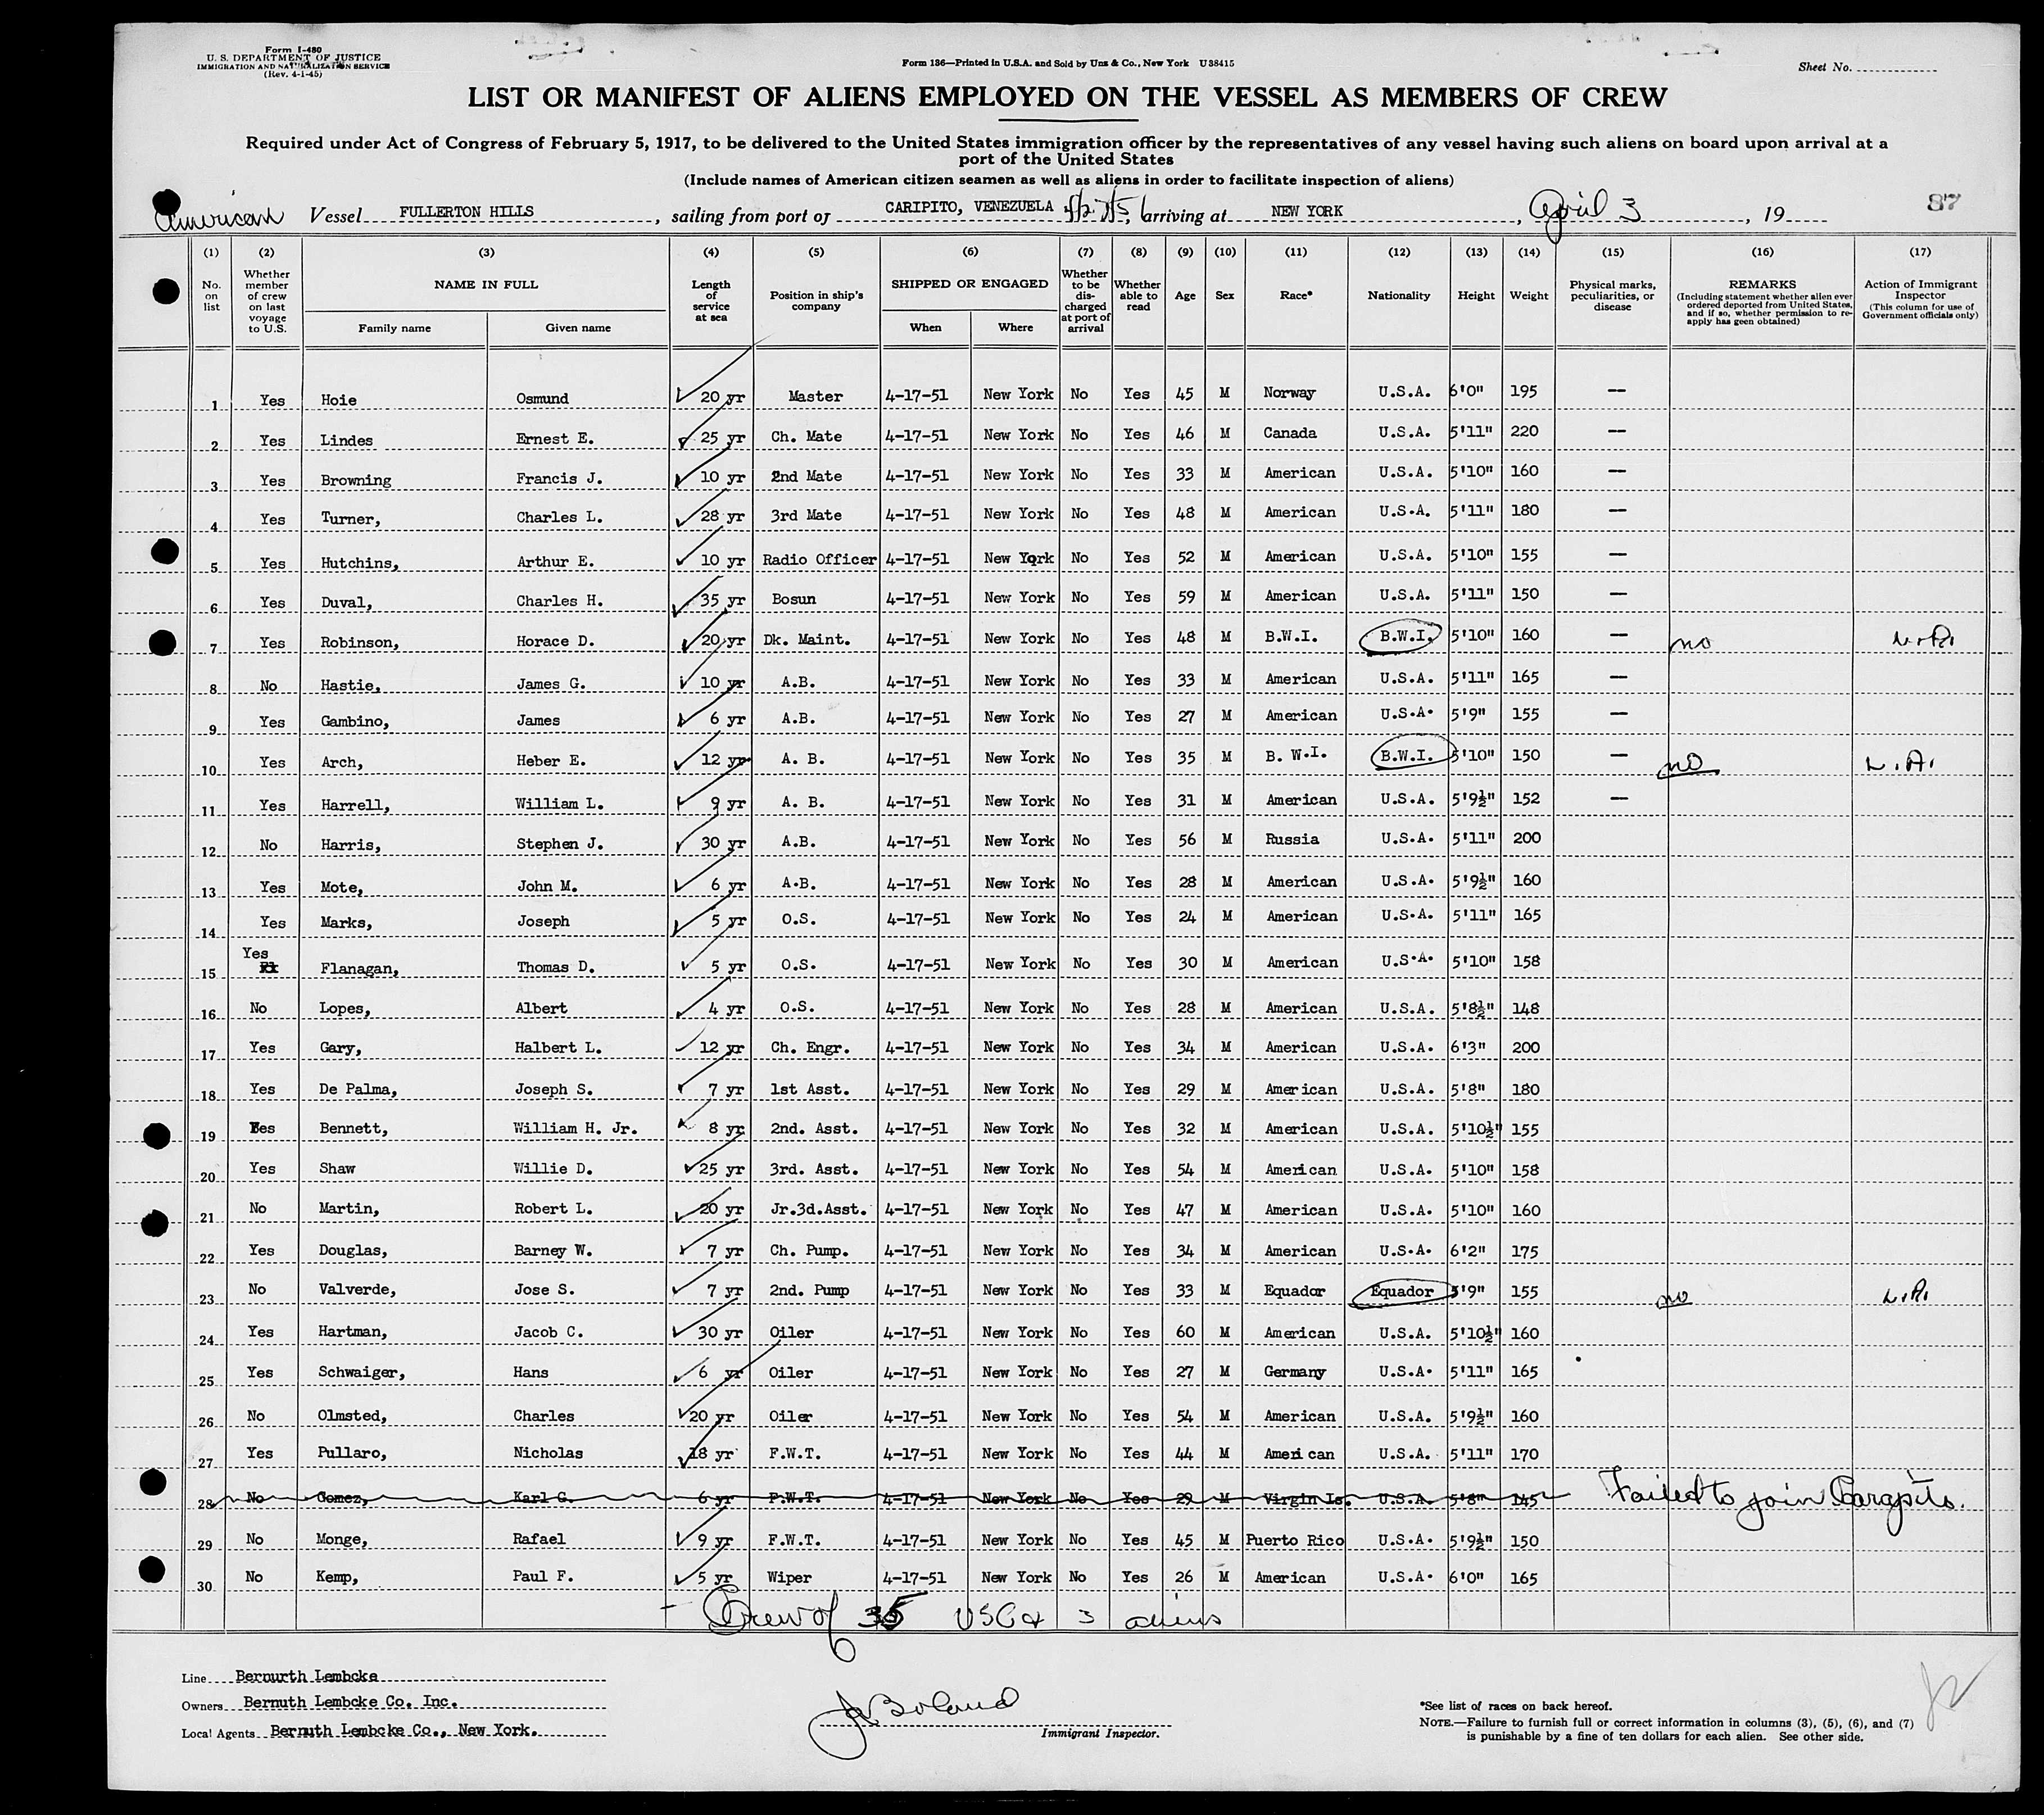 Form I-480
U. S. DEPARTMENT OF JUSTICE
IMMIGRATION AND NATURALIZATION SERVICE
(Rev. 4-1-45)
Form 136—Printed in U.S.A. and Sold by Unz & Co., New York U38415
Sheet No.
LIST OR MANIFEST OF ALIENS EMPLOYED ON THE VESSEL AS MEMBERS OF CREW
Required under Act of Congress of February 5, 1917, to be delivered to the United States immigration officer by the representatives of any vessel having such aliens on board upon arrival at a
port of the United States
(Include names of American citizen seamen as well as aliens in order to facilitate inspection of aliens)
American Vessel FULLERTON HILLS, sailing from port of CARIPITO, VENEZUELA, arriving at NEW YORK, April 3, 19 87
(1) (2) (3) (4) (5) (6) (7) (8) (9) (10) (11) (12) (13) (14) (15) (16) (17)
No. on list
Whether member of crew on last voyage to U.S.
NAME IN FULL
Family name Given name
Length of service at sea
Position in ship's company
SHIPPED OR ENGAGED
When Where
Whether to be dis-charged at port of arrival
Whether able to read
Age
Sex
Race*
Nationality
Height
Weight
Physical marks, peculiarities, or disease
REMARKS
(Including statement whether alien ever ordered deported from United States, and if so, whether permission to re-apply has geen obtained)
Action of Immigrant Inspector
(This column for use of Government officials only)
1 Yes Hoie Osmund 20 yr Master 4-17-51 New York No Yes 45 M Norway U.S.A. 6'0" 195 —
2 Yes Lindes Ernest E. 25 yr Ch. Mate 4-17-51 New York No Yes 46 M Canada U.S.A. 5'11" 220 —
3 Yes Browning Francis J. 10 yr 2nd Mate 4-17-51 New York No Yes 33 M American U.S.A. 5'10" 160 —
4 Yes Turner, Charles L. 28 yr 3rd Mate 4-17-51 New York No Yes 48 M American U.S.A. 5'11" 180 —
5 Yes Hutchins, Arthur E. 10 yr Radio Officer 4-17-51 New York No Yes 52 M American U.S.A. 5'10" 155 —
6 Yes Duval, Charles H. 35 yr Bosun 4-17-51 New York No Yes 59 M American U.S.A. 5'11" 150 —
7 Yes Robinson, Horace D. 20 yr Dk. Maint. 4-17-51 New York No Yes 48 M B.W.I. B.W.I. 5'10" 160 — no
8 No Hastie, James G. 10 yr A.B. 4-17-51 New York No Yes 33 M American U.S.A. 5'11" 165 —
9 Yes Gambino, James 6 yr A.B. 4-17-51 New York No Yes 27 M American U.S.A. 5'9" 155 —
10 Yes Arch, Heber E. 12 yr A. B. 4-17-51 New York No Yes 35 M B. W.I. B.W.I. 5'10" 150 — no
11 Yes Harrell, William L. 9 yr A. B. 4-17-51 New York No Yes 31 M American U.S.A. 5'9½" 152 —
12 No Harris, Stephen J. 30 yr A.B. 4-17-51 New York No Yes 56 M Russia U.S.A. 5'11" 200
13 Yes Mote, John M. 6 yr A.B. 4-17-51 New York No Yes 28 M American U.S.A. 5'9½" 160
14 Yes Marks, Joseph 5 yr O.S. 4-17-51 New York No Yes 24 M American U.S.A. 5'11" 165
15 Yes Flanagan, Thomas D. 5 yr O.S. 4-17-51 New York No Yes 30 M American U.S.A. 5'10" 158
16 No Lopes, Albert 4 yr O.S. 4-17-51 New York No Yes 28 M American U.S.A. 5'8½" 148
17 Yes Gary, Halbert L. 12 yr Ch. Engr. 4-17-51 New York No Yes 34 M American U.S.A. 6'3" 200
18 Yes De Palma, Joseph S. 7 yr 1st Asst. 4-17-51 New York No Yes 29 M American U.S.A. 5'8" 180
19 Yes Bennett, William H. Jr. 8 yr 2nd. Asst. 4-17-51 New York No Yes 32 M American U.S.A. 5'10½" 155
20 Yes Shaw Willie D. 25 yr 3rd. Asst. 4-17-51 New York No Yes 54 M American U.S.A. 5'10" 158
21 No Martin, Robert L. 20 yr Jr.3d.Asst. 4-17-51 New York No Yes 47 M American U.S.A. 5'10" 160
22 Yes Douglas, Barney W. 7 yr Ch. Pump. 4-17-51 New York No Yes 34 M American U.S.A. 6'2" 175
23 No Valverde, Jose S. 7 yr 2nd. Pump 4-17-51 New York No Yes 33 M Equador Equador 5'9" 155 no
24 Yes Hartman, Jacob C. 30 yr Oiler 4-17-51 New York No Yes 60 M American U.S.A. 5'10½" 160
25 Yes Schwaiger, Hans 6 yr Oiler 4-17-51 New York No Yes 27 M Germany U.S.A. 5'11" 165
26 No Olmsted, Charles 20 yr Oiler 4-17-51 New York No Yes 54 M American U.S.A. 5'9½" 160
27 Yes Pullaro, Nicholas 18 yr F.W.T. 4-17-51 New York No Yes 44 M American U.S.A. 5'11" 170
28 No Gomez, Karl G. 6 yr F.W.T. 4-17-51 New York No Yes 29 M Virgin Is. U.S.A. 5'8" 145 Failed to join
29 No Monge, Rafael 9 yr F.W.T. 4-17-51 New York No Yes 45 M Puerto Rico U.S.A. 5'9½" 150
30 No Kemp, Paul F. 5 yr Wiper 4-17-51 New York No Yes 26 M American U.S.A. 6'0" 165
Crew of 35 USC & 3 aliens
Line Bernurth Lembcke
Owners Bernuth Lembcke Co. Inc.
Local Agents Bernuth Lembcke Co., New York.
Boland
Immigrant Inspector.
*See list of races on back hereof.
NOTE.—Failure to furnish full or correct information in columns (3), (5), (6), and (7)
is punishable by a fine of ten dollars for each alien. See other side.